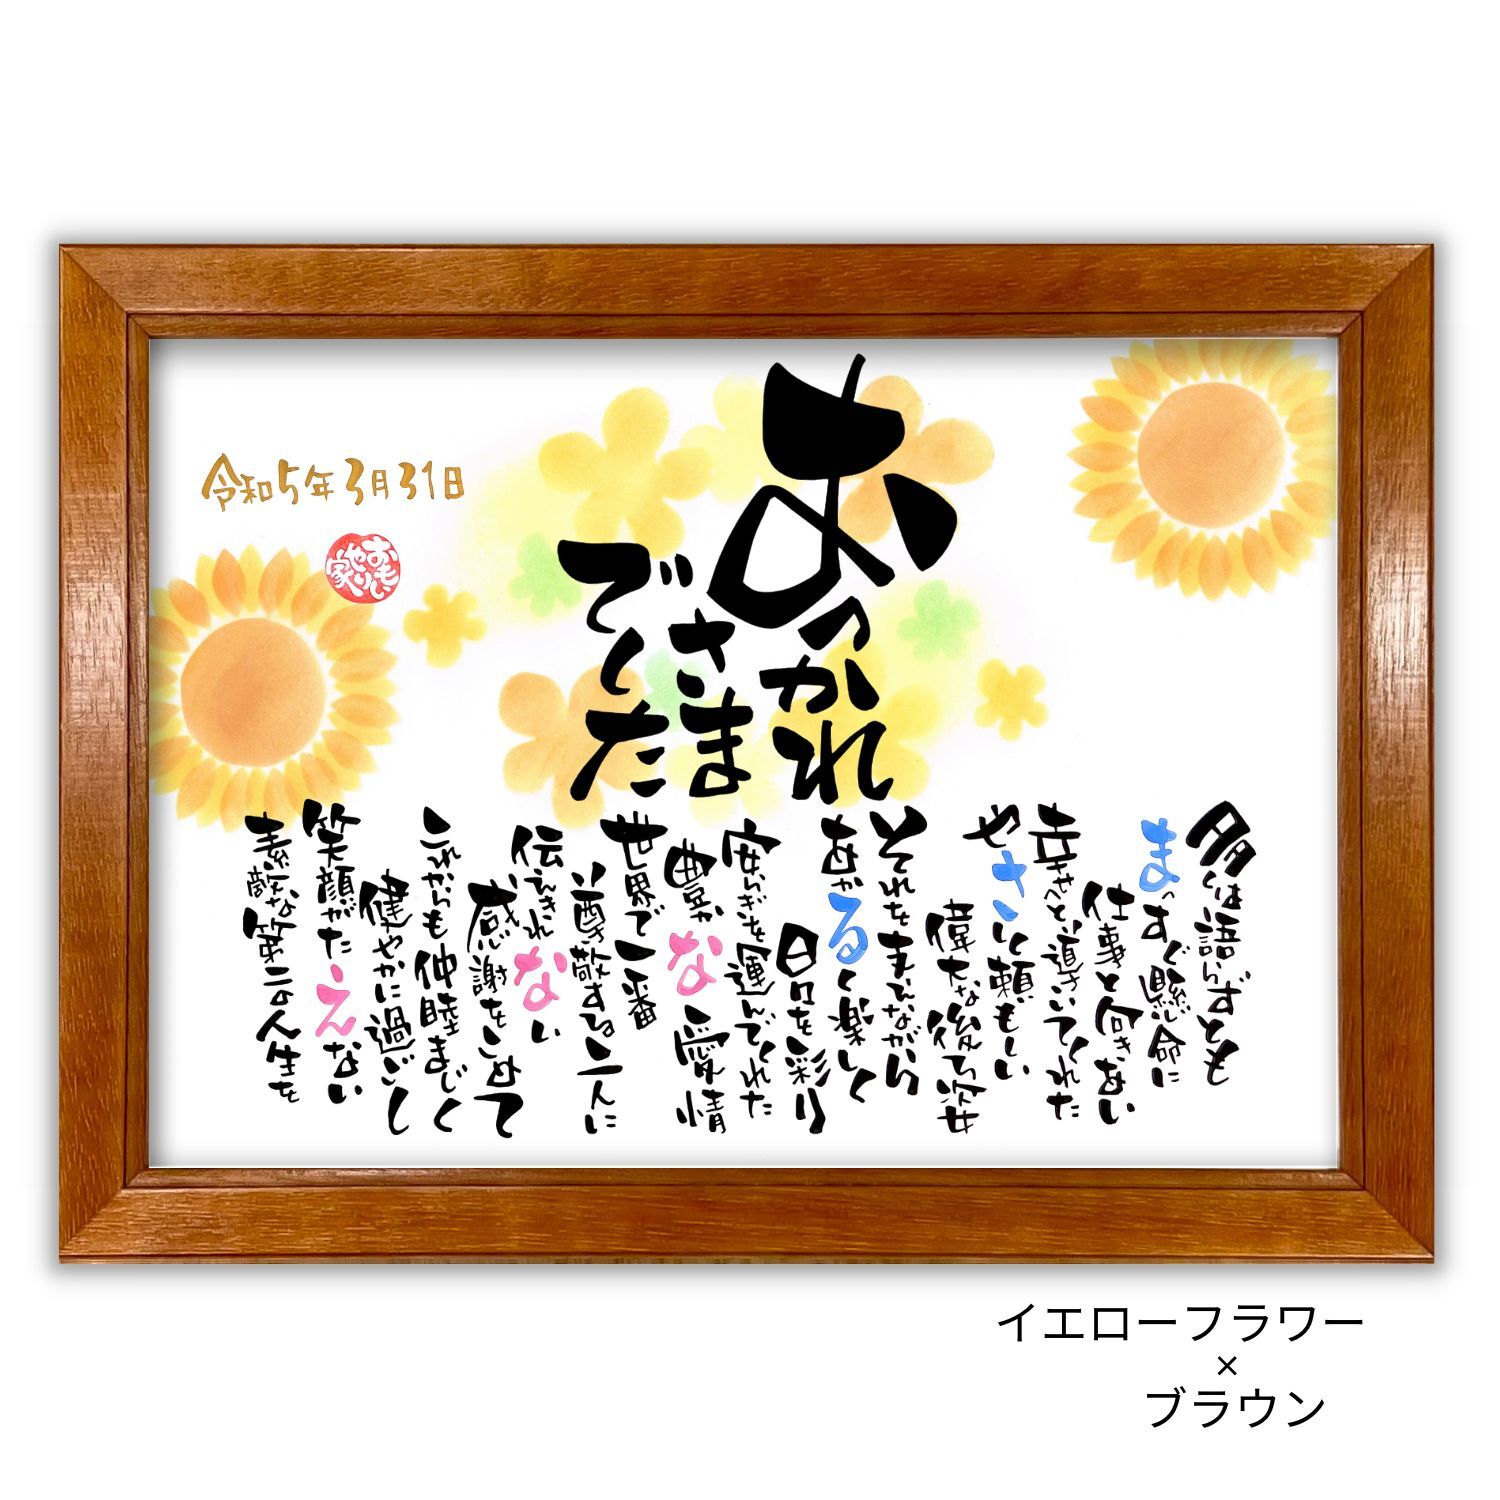 おつかれ
さま
でした
令和5年3月31日
おもいやり家
多くは語らずとも
まっすぐ懸命に
仕事と向きあい
幸せへと導いてくれた
やさしく頼もしい
偉大な後ろ姿
それを支えながら
あかるく楽しく
日々を彩り
安らぎを運んでくれた
豊かな愛情
世界で一番
尊敬する二人に
伝えきれない
感謝をこめて
これからも仲睦まじく
健やかに過ごし
笑顔がたえない
素敵な第二の人生を
イエローフラワー
×
ブラウン